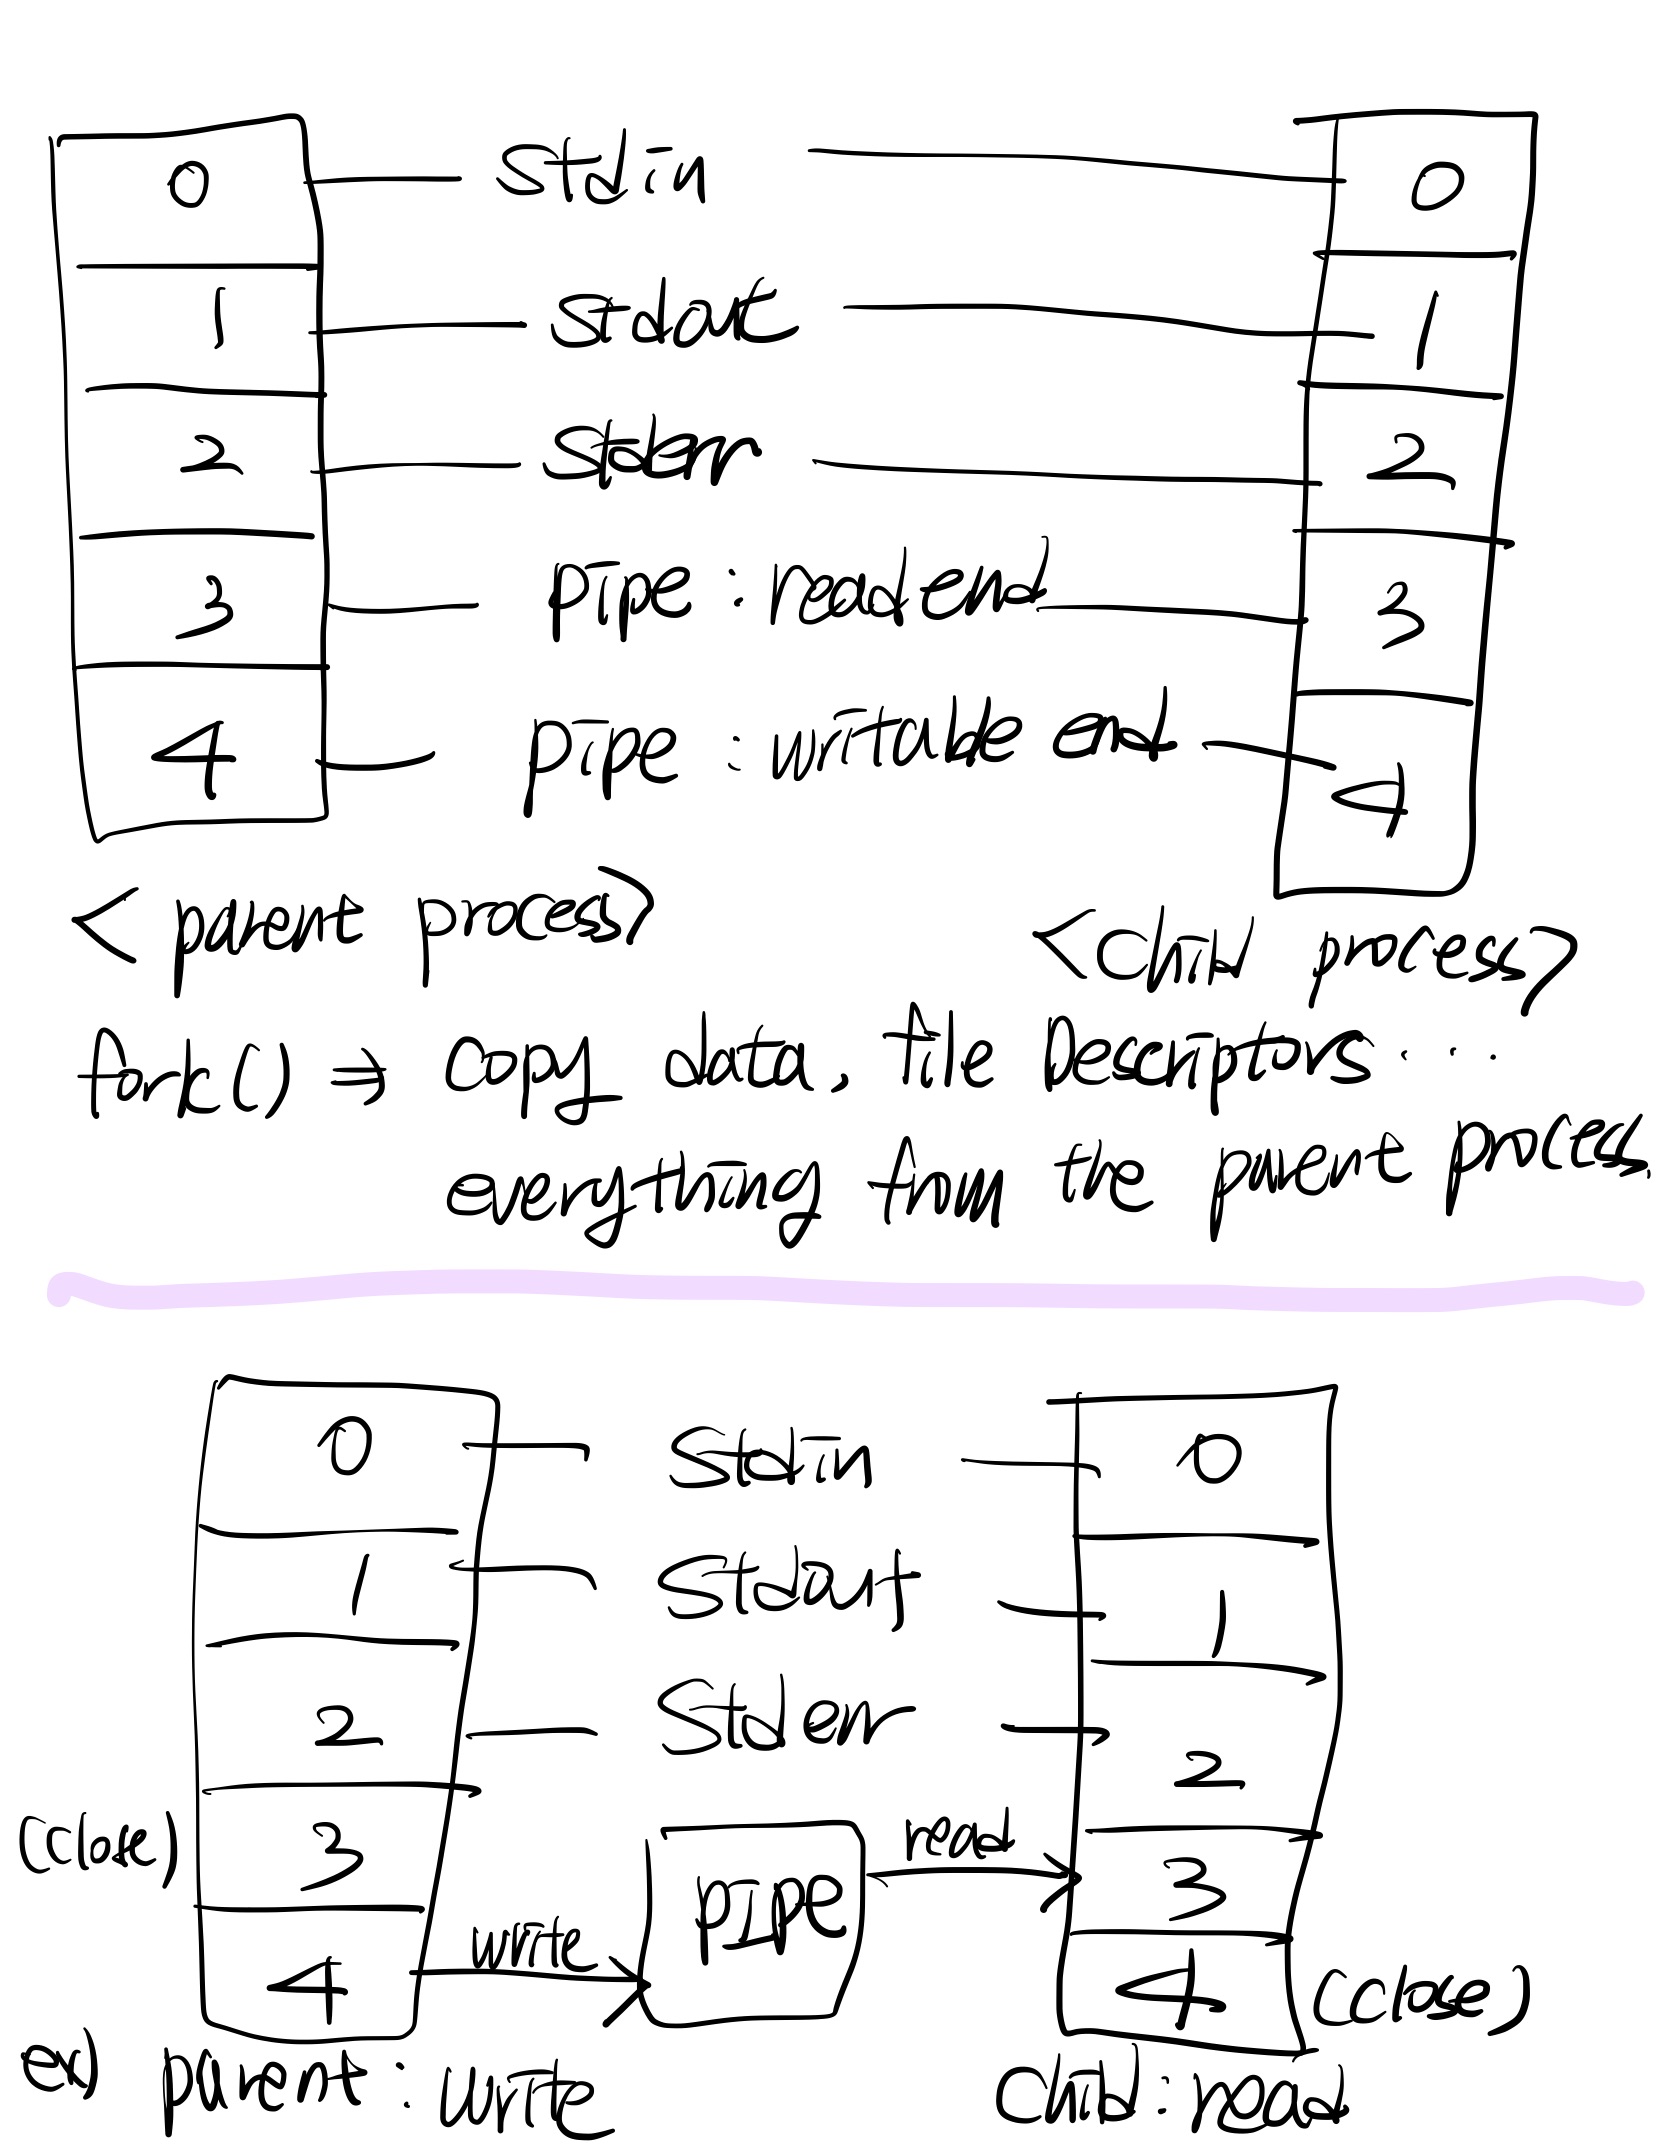 0 stdin 0
1 stdout 1
2 stderr 2
3 pipe : read end 3
4 pipe : writable end 4
<parent process> <child process>
fork() => copy data, file Descriptors...
everything from the parent process.
0 stdin 0
1 stdout 1
2 stderr 2
(close) 3 pipe read 3
4 write 4 (close)
ex) parent : write child : read